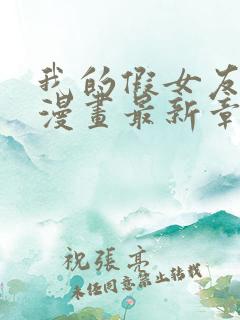 我的假女友
漫畫最新章
祝張亭
未任同意禁止轉載